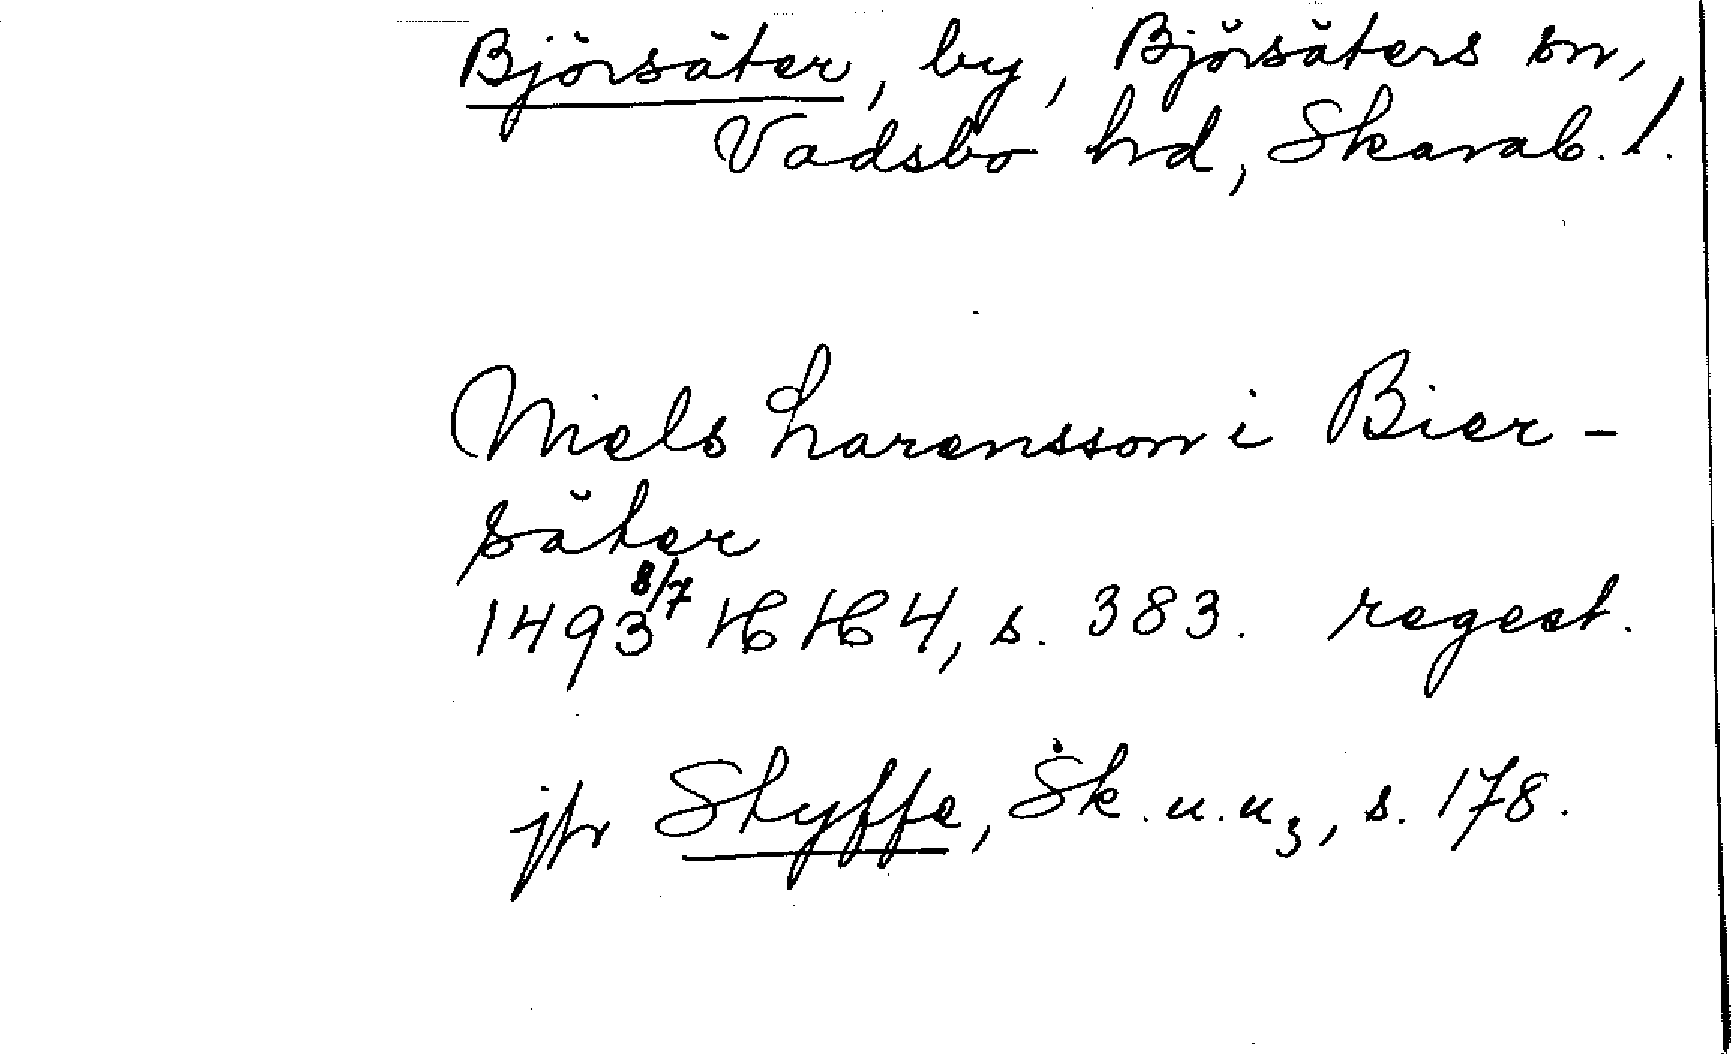 Björsäter, by, Björsäters sn,
Vadsbo hd, Skarab. l.
Niels Larensson i Bier-
säter
1493 8/7 HH 4, s. 383. regest.
jfr Styffe, Sk.u.u3, s. 178.